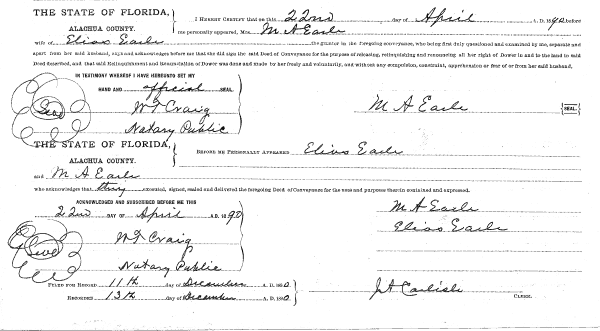 THE STATE OF FLORIDA,
ALACHUA COUNTY.
I HEREBY CERTIFY that on this 22nd day of April A. D. 1890 before
me personally appeared, Mrs. M A Earle
wife of Elias Earle the grantor in the foregoing conveyance, who being first duly questioned and examined by me, separate and
apart from her said husband, upon and acknowledged before me that she did sign the said Deed of Conveyance for the purpose of releasing, relinquishing and renouncing all her right of Dower in and to the land in said
Deed described, and that said Relinquishment and Renunciation of Dower was done and made by her freely and voluntarily, and without any compulsion, constraint, apprehension or fear of or from her said husband,
IN TESTIMONY WHEREOF I HAVE HEREUNTO SET MY
HAND AND official SEAL
Seal
W T Craig
Notary Public
M A Earle
SEAL
THE STATE OF FLORIDA,
ALACHUA COUNTY.
BEFORE ME PERSONALLY APPEARED Elias Earle
and M A Earle
who acknowledges that they executed, signed, sealed and delivered the foregoing Deed of Conveyance for the uses and purposes therein contained and expressed.
ACKNOWLEDGED AND SUBSCRIBED BEFORE ME THIS
22nd DAY OF April A.D. 1890
Seal
W T Craig
Notary Public
M A Earle
Elias Earle
FILED FOR RECORD 11th day of December A. D. 1890
RECORDED 13th day of December A. D. 1890
J A Carlisle CLERK.